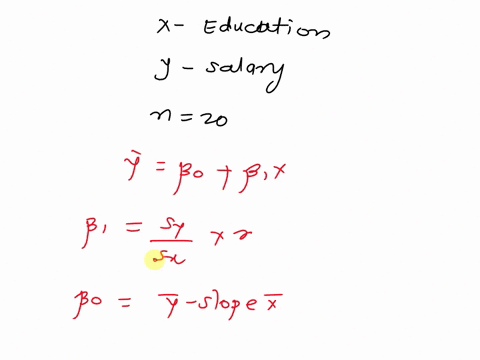 x - Education
y - salary
n = 20
ŷ = β0 + β1 x
β1 = sy/sx × r
β0 = ȳ - slope x̄